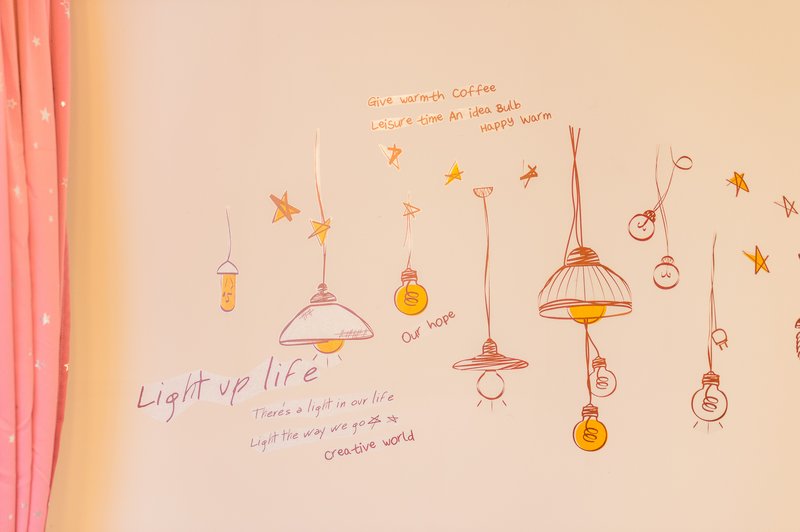 Give warmth Coffee
Leisure time An idea Bulb
Happy Warm
Our hope
Light up life
There's a light in our life
Light the way we go
Creative world